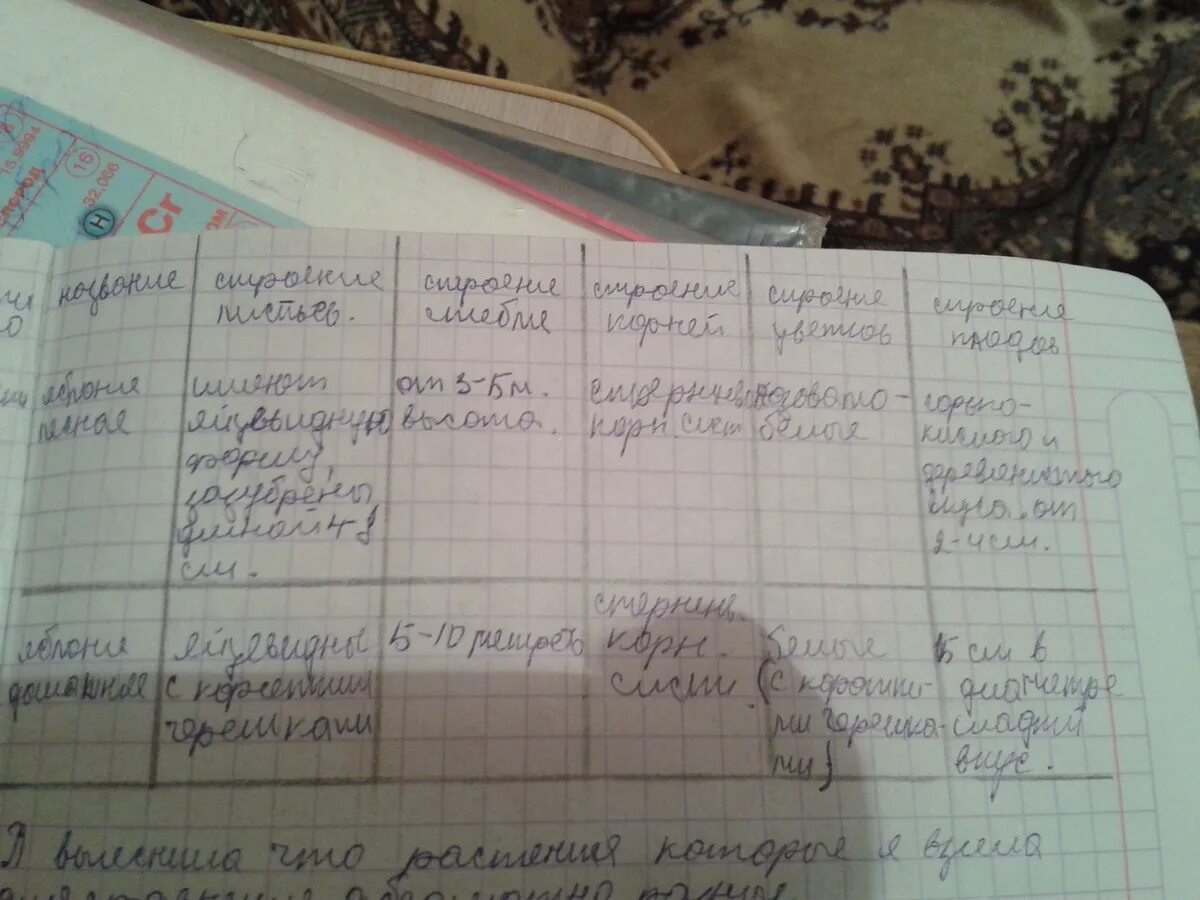 8
15,9994
16
32,066
Н
Cr
название
строение
листьев.
строение
стебля
строение
корней
строение
цветков
строение
плодов
яблоня
лесная
имеют
яйцевидную
форму,
зазубрены
длиной 4-8
см.
от 3-5м.
высота.
стержнев
корн. сист
розовато-
белые
горько-
кислого и
деревенистого
вкуса. от
2-4см.
яблоня
домашняя
яйцевидны
с короткими
черешками
5-10 метров
стержнев.
корн.
сист.
белые
(с коротки-
ми черешка-
ми)
15 см в
диаметре
сладкий
вкус.
Я выяснила что растения которые я взяла
абсолютно разные